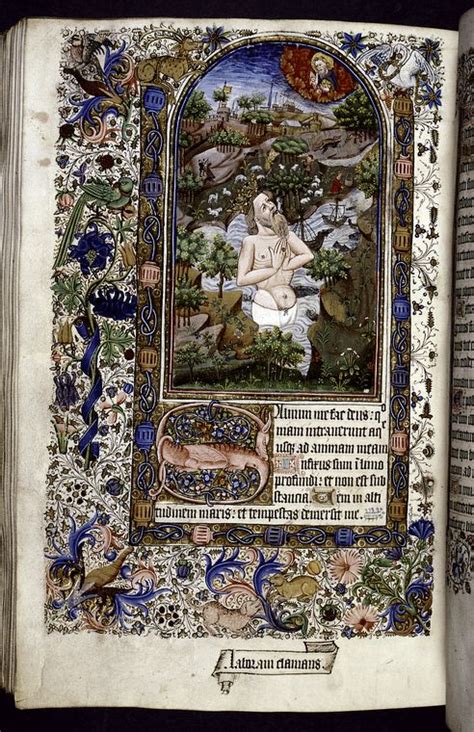 Saluum me fac deus: qo
niam intrauerunt aq
usqꝫ ad animam meam
Infixus sum i limo
profundi: et non est sub
stancia. Ueni in alti
tudinem maris: et tempestas demersit me.
Laboraui clamans.